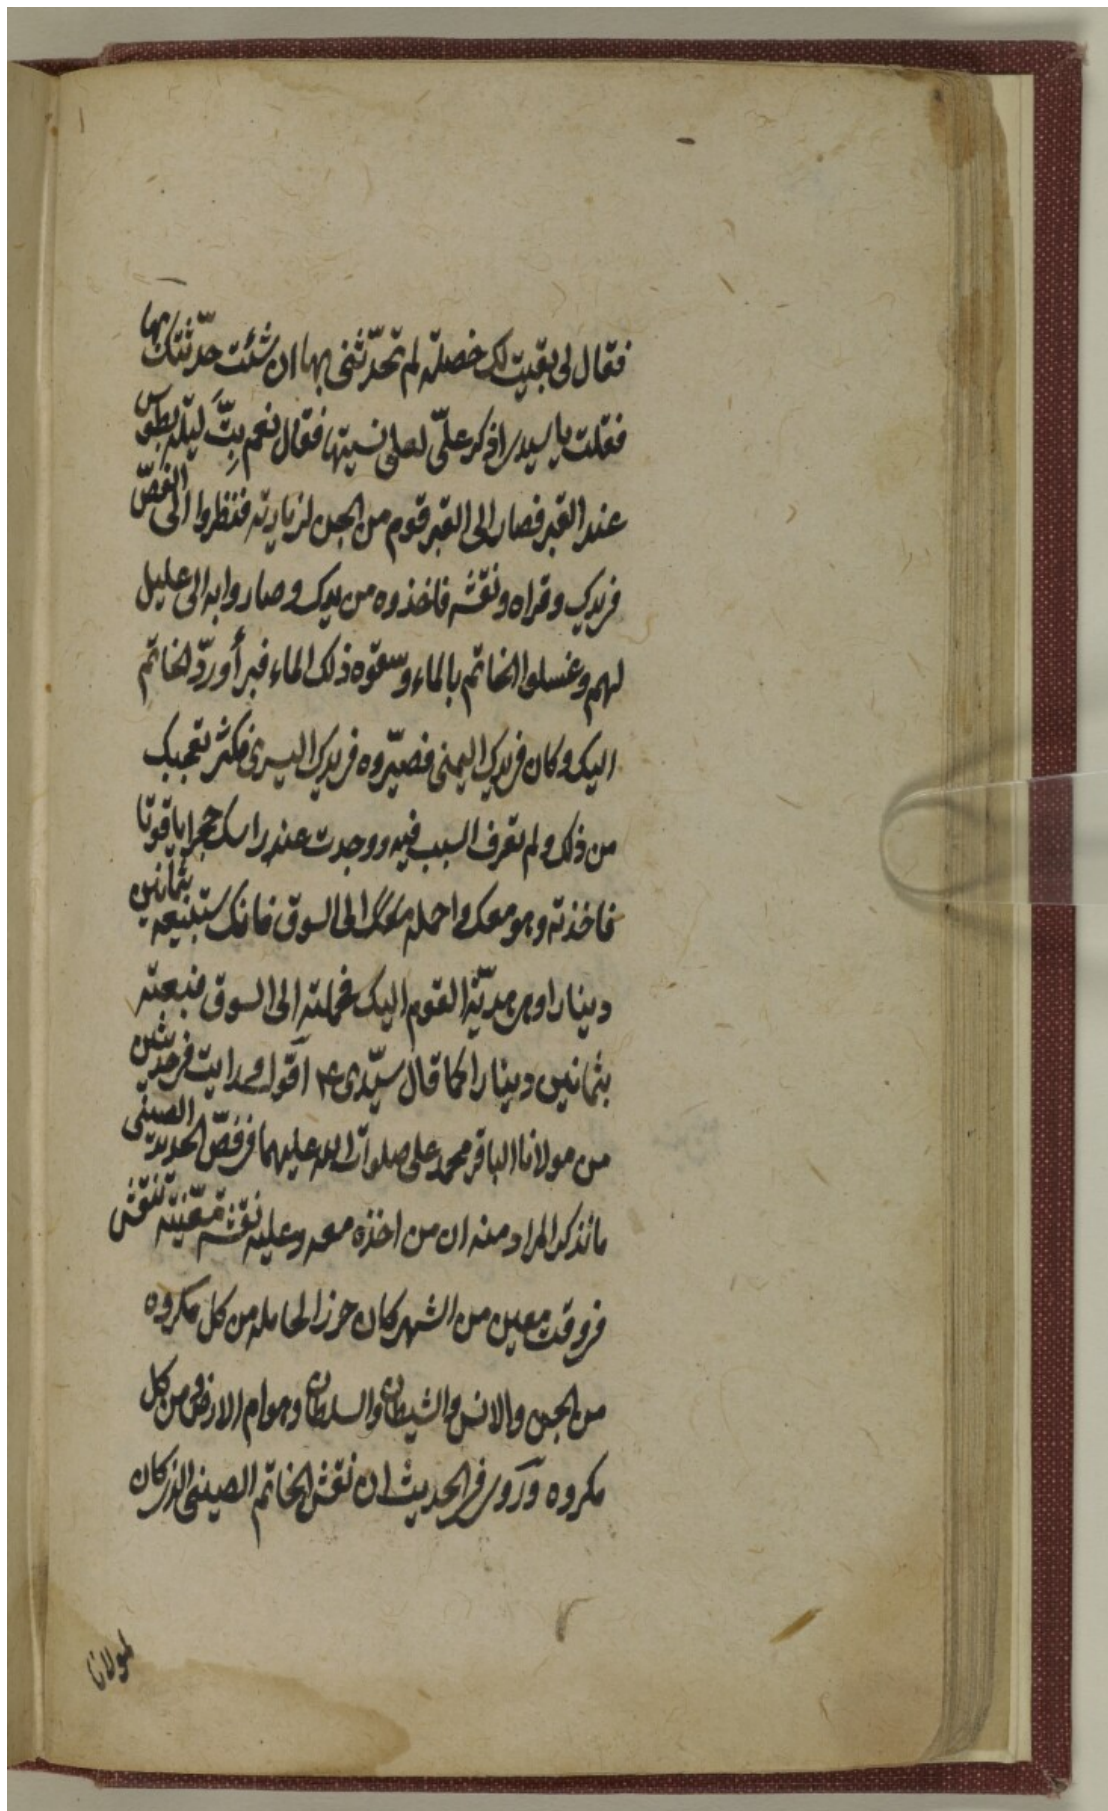 فقال لی بقیت لک خصلة لم تحدّثنی بها ان شئت حدّثتک بها
فقلت یا سیدی اذکر علیّ لعلی نسیتها فقال نعم بِتَّ لیلة بطوس
عند القبر فصار الی القبر قوم من الجن لزیارته فنظروا الی الفصّ
فی یدک وقراه ونقشه فاخذوه من یدک وصاروا به الی علیل
لهم وغسلوا الخاتم بالماء وسقوه ذلک الماء فبرأ وردّ الخاتم
الیک وکان فی یدک الیمنی فصیّروه فی یدک الیسری فکثر تعجبک
من ذلک ولم تعرف السبب فیه ووجدت عند راسک حجرا یاقوتا
فاخذته وهو معک واحمله معک الی السوق فانک ستبیعه بثمانین
دینارا وهی هدیّة القوم الیک فحملته الی السوق فبعته
بثمانین دینارا کما قال سیّدی ع اقول ورایت فی حدیث
من مولانا الباقر محمد علی صلوات الله علیهما فی فصّ الحدید الصینی
ما نذکر المراد منه ان من اخذه معه وعلیه نقش معّینة تنقش
فی وقت معین من الشهر کان حرزا لحامله من کل مکروه
من الجن والانس والشیطان والسلطان وهوام الارض ومن کل
مکروه وروی فی الحدیث ان نقش الخاتم الصینی الذی کان
لمولانا